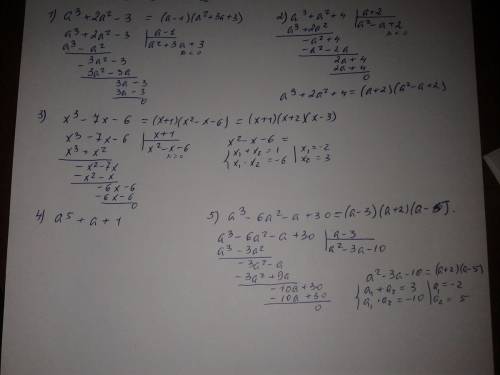 1) a³+2a²-3 = (a-1)(a²+3a+3)
a³+2a²-3 | a-1
a³-a² | a²+3a+3
3a²-3
3a²-3a
3a-3
3a-3
0
2) a³+a²+4 | a+2
a³+2a² | a²-a+2
-a²+4
-a²-2a
2a+4
2a+4
0
a³+2a²+4=(a+2)(a²-a+2)
3) x³-7x-6=(x+1)(x²-x-6)=(x+1)(x+2)(x-3)
x³-7x-6 | x+1
x³+x² | x²-x-6
-x²-7x
-x²-x
-6x-6
-6x-6
0
x²-x-6=
x₁+x₂=1 | x₁=-2
x₁·x₂=-6 | x₂=3
4) a⁵+a+1
5) a³-6a²-a+30=(a-3)(a+2)(a-5).
a³-6a²-a+30 | a-3
a³-3a² | a²-3a-10
-3a²-a
-3a²+9a
-10a+30
-10a+30
0
a²-3a-10=(a+2)(a-5)
a₁+a₂=3 | a₁=-2
a₁·a₂=-10 | a₂=5